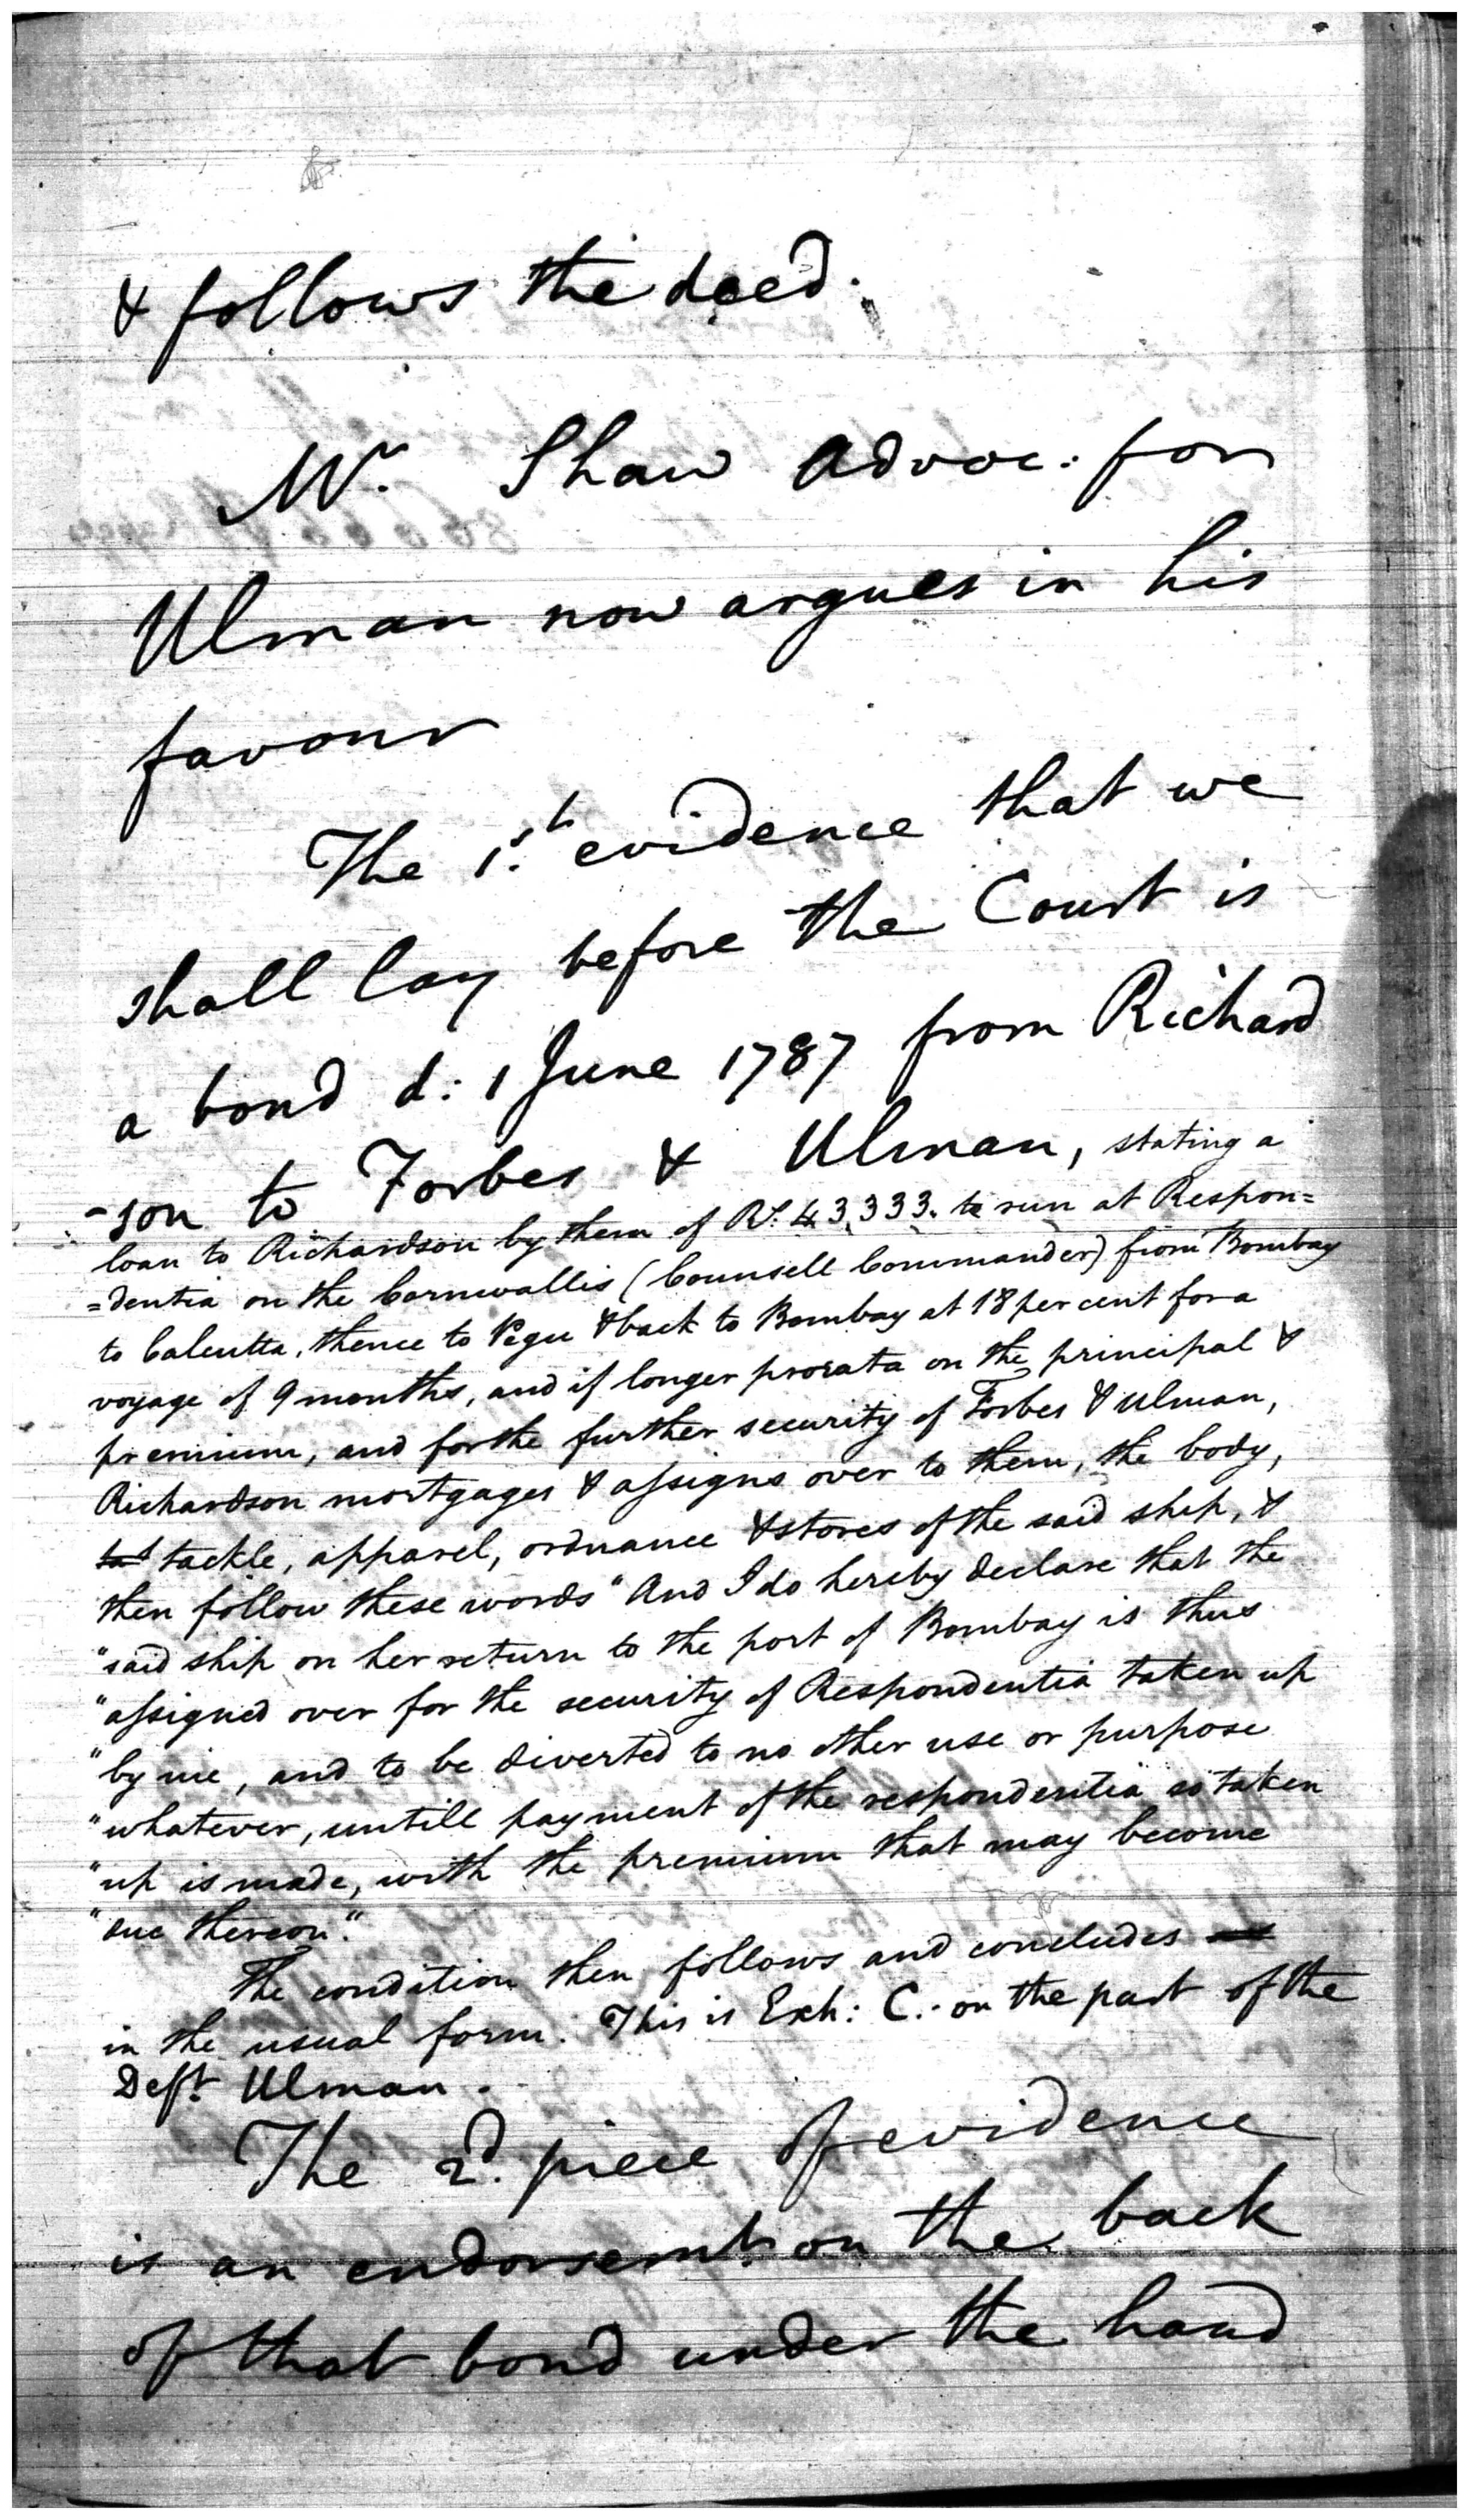 & follows the deed.
Mr. Shaw Advoc: for
Ulman now argues in his
favour
The 1st. evidence that we
shall lay before the Court is
a bond d: 1 June 1787 from Richard
-son to Forbes & Ulman, stating a
loan to Richardson by them of Rs. 43,333. to run at Respon=
=dentia on the Cornwallis (Counsell Commander) from Bombay
to Calcutta, thence to Pegu & back to Bombay at 18 per cent for a
voyage of 9 months, and if longer prorata on the principal &
premium, and for the further security of Forbes & Ulman,
Richardson mortgages & assigns over to them, the body,
tackle, apparel, ordnance & stores of the said ship, &
then follow these words "And I do hereby declare that the
"said ship on her return to the port of Bombay is thus
"assigned over for the security of Respondentia taken up
"by me, and to be diverted to no other use or purpose
"whatever, untill payment of the respondentia so taken
"up is made, with the premium that may become
"due thereon."
The condition then follows and concludes
in the usual form. This is Exh: C.: on the part of the
Deft. Ulman.
The 2d. piece of evidence
is an endorsemt. on the back
of that bond under the hand